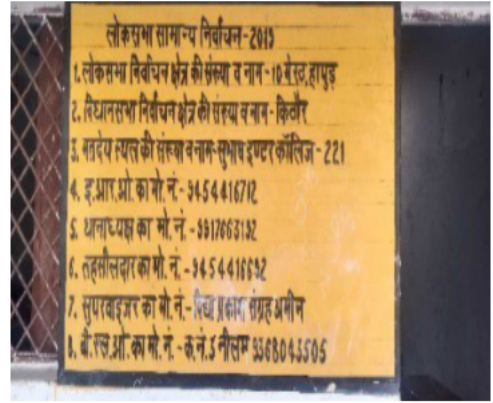 लोकसभा सामान्य निर्वाचन - 2019
1. लोकसभा निर्वाचन क्षेत्र की संख्या व नाम - 10 मेरठ, हापुड़
2. विधानसभा निर्वाचन क्षेत्र की संख्या व नाम - किठौर
3. मतदेय स्थल की संख्या व नाम - सुभाष इण्टर कॉलिज - 221
4. इ.आर.ओ. का मो. नं. - 9454416712
5. थानाध्यक्ष का मो. नं. - 9917663192
6. तहसीलदार का मो. नं. - 9454416692
7. सुपरवाइजर का मो. नं. - विद्या प्रकाश संग्रह अमीन
8. बी.एल.ओ. का मो. नं. - क.नं. 5 नीलम 9368043505